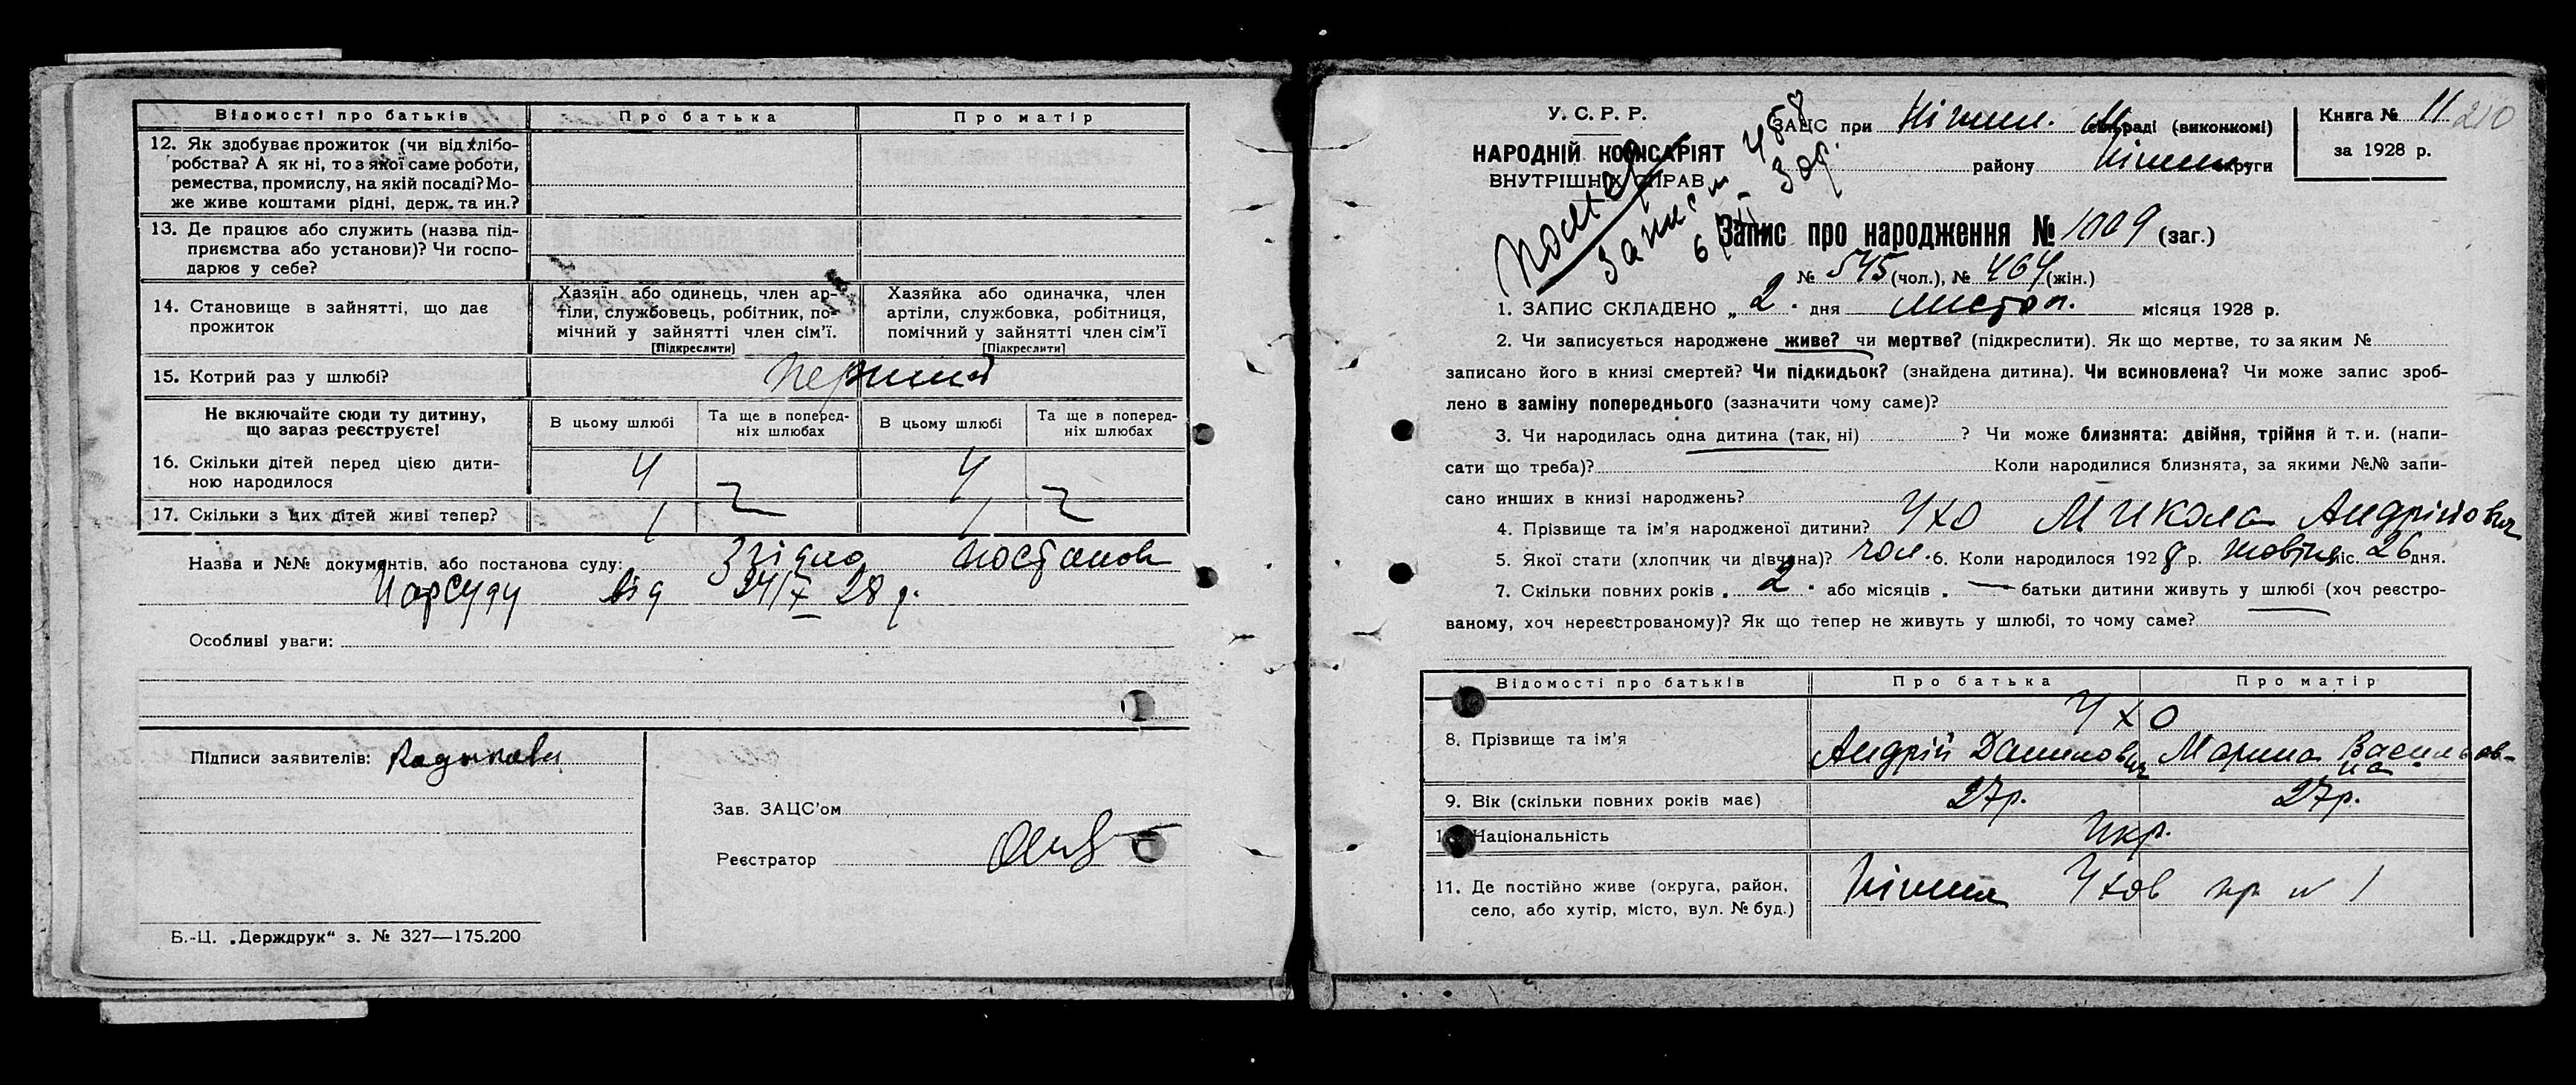 Відомості про батьків Про батька Про матір
12. Як здобуває прожиток (чи від хлібо-
робства? А як ні, то з якої саме роботи,
ремества, промислу, на якій посаді? Мо-
же живе коштами рідні, держ. та ин.?
13. Де працює або служить (назва під-
приємства або установи)? Чи госпо-
дарює у себе?
14. Становище в зайнятті, що дає
прожиток
Хазяїн або одинець, член ар-
тіли, службовець, робітник, по-
мічний у зайнятті член сім'ї.
[Підкреслити]
Хазяйка або одиначка, член
артіли, службовка, робітниця,
помічний у зайнятті член сім'ї
[Підкреслити]
15. Котрий раз у шлюбі? перший
Не включайте сюди ту дитину,
що зараз реєструєте!
В цьому шлюбі
Та ще в поперед-
ніх шлюбах
В цьому шлюбі
Та ще в поперед-
ніх шлюбах
16. Скільки дітей перед цією дити-
ною народилося 4 4
17. Скільки з цих дітей живі тепер? 1 1
Назва и №№ документів, або постанова суду: Згідно постанов
Нарсуду від 24/X 28 р.
Особливі уваги:
Підписи заявителів:
Зав. ЗАЦС'ом
Реєстратор
Б.-Ц. „Держдрук“ з. № 327—175.200
У. С. Р. Р.
НАРОДНІЙ КОМІСАРІЯТ
ВНУТРІШНІХ СПРАВ
ЗАЦС при Ніжин. М сільраді (виконкомі)
району Ніжин округи
Книга № 11 210
за 1928 р.
Запис про народження № 1009 (заг.)
№ 545 (чол.), № 464 (жін.)
1. ЗАПИС СКЛАДЕНО „ 2 “ дня листоп. місяця 1928 р.
2. Чи записується народжене живе? чи мертве? (підкреслити). Як що мертве, то за яким №
записано його в книзі смертей? Чи підкидьок? (знайдена дитина). Чи всиновлена? Чи може запис зроб-
лено в заміну попереднього (зазначити чому саме)?
3. Чи народилась одна дитина (так, ні) ? Чи може близнята: двійня, трійня й т. и. (напи-
сати що треба)? Коли народилися близнята, за якими №№ запи-
сано инших в книзі народжень?
4. Прізвище та ім'я народженої дитини? Ухо Микола Андрійович
5. Якої стати (хлопчик чи дівчина)? чол. 6. Коли народилося 1928 р. жовтня міс. 26 дня.
7. Скільки повних років „ 2 “ або місяців „ — батьки дитини живуть у шлюбі (хоч реєстро-
ваному, хоч нереєстрованому)? Як що тепер не живуть у шлюбі, то чому саме?
Відомості про батьків Про батька Про матір
Ухо
8. Прізвище та ім'я Андрій Данилович Марина Васильов-
на
9. Вік (скільки повних років має) 27р. 27р.
10. Національність Укр.
11. Де постійно живе (округа, район,
село, або хутір, місто, вул. № буд.)
Ніжин Ухов пр № 1